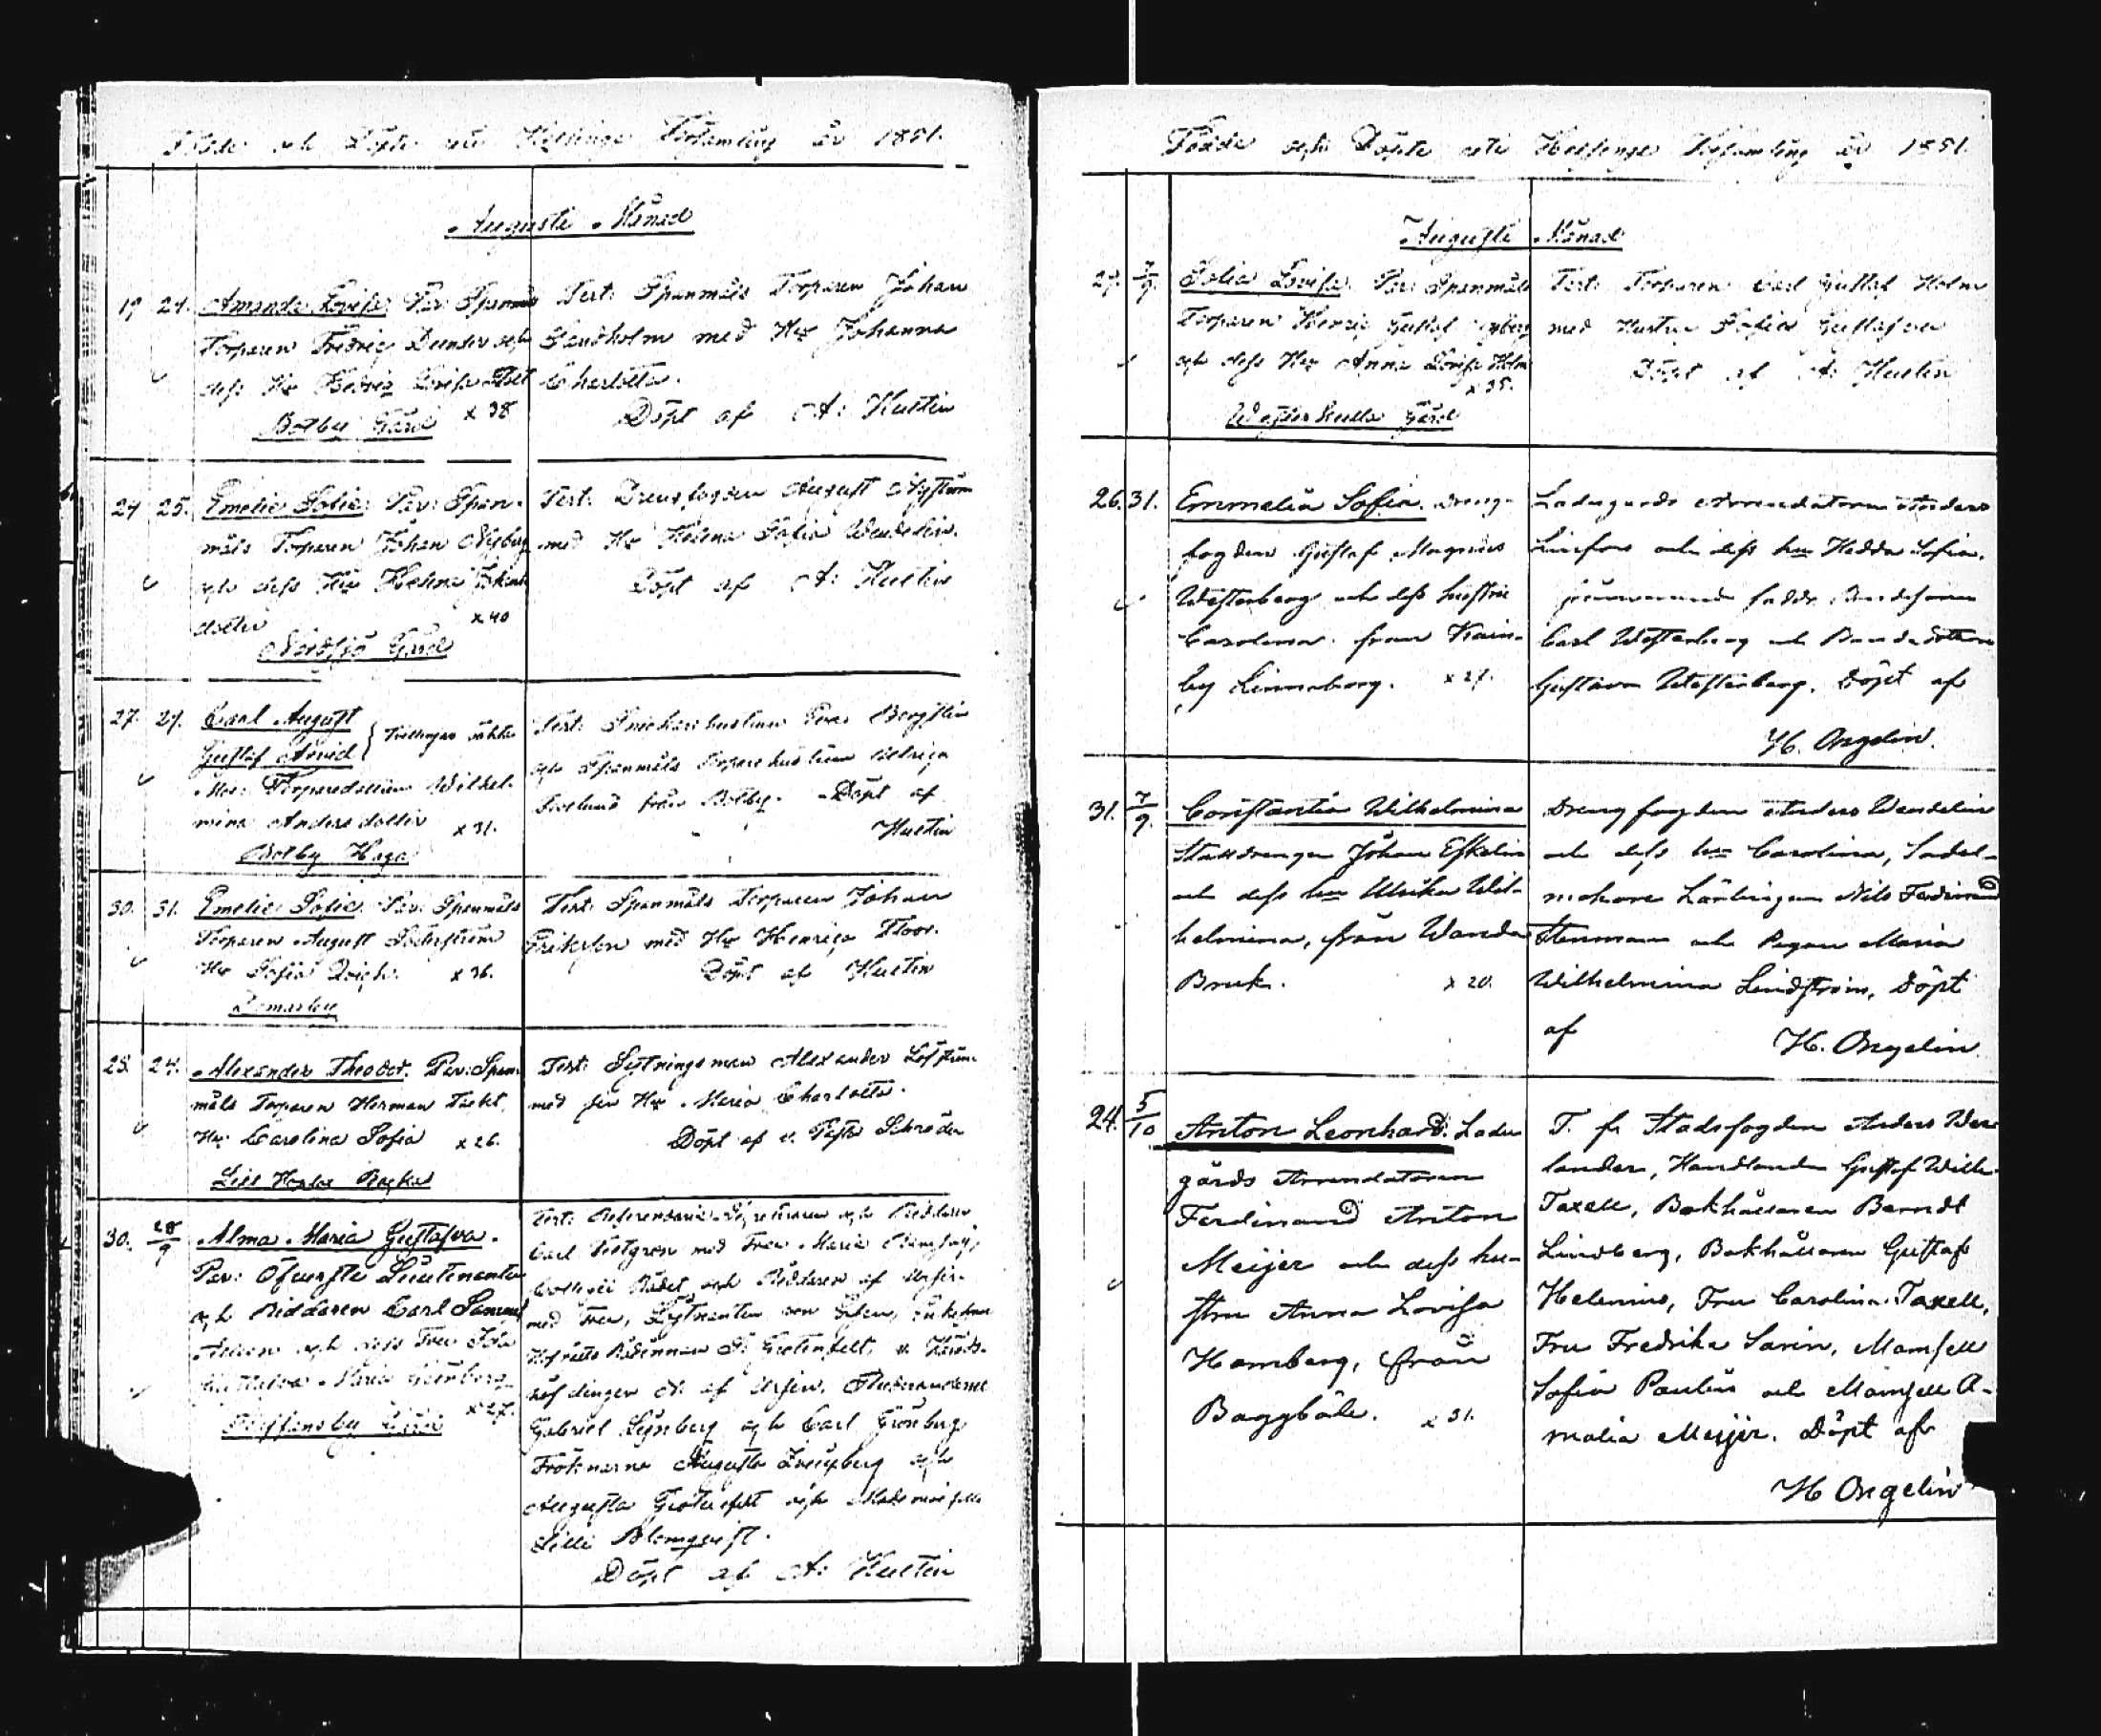 Födde och Döpte uti Helsinge Församling år 1851.
Augusti Månad
19 24. Amanda Lovisa. Par: Spanmåls
Torparen Fredric Dunder och
dess Hu Hedvig Lovisa
x 38
Botby Gård
Test: Spanmåls Torparen Johan
Sandholm med Hu Johanna
Charlotta.
Döpt af A: Hustin
24 25. Emelie Sofie. Par: Span-
måls Torparen Johan Nyberg
och dess Hu Helena Johans
dotter x 40
Nordsjö Gård
Test: Drengfogden August Nyström
med Hu Helena Sofia Wendelin.
Döpt af A: Hustin
27. 29. Carl August
Gustaf Arvid } Tvillingar oäkta
Mor: Torparedottern Wilhel-
mina Andersdotter x 31.
Botby Haga
Test: Snickarehustrun Eva Bergstén
och Spanmåls Torparehustrun Ulrica
från Botby. Döpt af
Hustin
30. 31. Emelie Sofie. Par: Spanmåls
Torparen August Söderström
Hu Sofia x 36.
Domarby
Test: Spanmåls Torparen Johan
Erikson med Hu Henrica Floor.
Döpt af Hustin
23. 24. Alexander Theodor. Par: Span-
måls Torparen Herman
Hu Carolina Sofia x 26.
Test: Sytningsman Alexander Löfström
med sin Hu Maria Charlotta.
Döpt af v. Past: Schröder
30. 28/9 Alma Maria Gustafva.
Par: Öfverste Lieutenanten
och Riddaren Carl Samuel
och dess Fru Ida
Gustafva Maria Grönberg
x 27.
Staffansby Gård
Test: Referendarie Secreteraren och Riddaren
Carl med Fru Maria
Collegii Rådet och Riddaren af Ursin
med Fru, Lojtnanten von Essen, Enkefru
af Ursin, Studeranderne
Gabriel och Carl Grönberg
Fröknarne Augusta och
Augusta Grotenfelt och Mademoiselle
Lilli Blomqvist.
Döpt af A: Hustin
Födde och Döpte uti Helsinge Församling år 1851.
Augusti Månad
27. 7/9. Sofia Lovisa. Par: Spanmåls
Torparen Henric Gustaf Nyberg
och dess Hu Anna Lovisa Holm
x 35.
Westerkulla Gård
Test: Torparen Carl Gustaf Holm
med Hustru Sofia Gustafva
Döpt af A: Hustin
26. 31. Emmelia Sofia. Dreng-
fogden Gustaf Magnus
Westerberg och dess hustru
Carolina. från
by Linnaberg. x 27.
Ladugårds Arrendatorn Anders
och dess hu Hedda Sofia,
Bondesonen
Carl Westerberg och Bondedottern
Gustava Westerberg. Döpt af
H. Ongelin.
31. 7/9. Constantia Wilhelmina
Stalldrengen Johan Eskelin
och dess hu Ulrika Wil-
helmina, från Wanda
Bruk. x 20.
Drengfogden Anders Wendelin
och dess hu Carolina, Sadel-
makare Lärlingen Nils Ferdinand
Stenman och Pigan Maria
Wilhelmina Lindström, Döpt
af H. Ongelin.
24. 5/10 Anton Leonhard. Ladu
gårds Arrendatorn
Ferdinand Anton
Meijer och dess hu-
stru Anna Lovisa
Hamberg, från
Baggböle. x 31.
T. fr Stadsfogden Anders Wer
lander, Handlanden Gustaf Wilh.
Taxell, Bokhållaren Berndt
Lindberg, Bokhållaren Gustaf
Helenius, Fru Carolina Taxell,
Fru Fredrika Sarin, Mamsell
Sofia Paulin och Mamsell A-
malia Meijer. Döpt af
H Ongelin